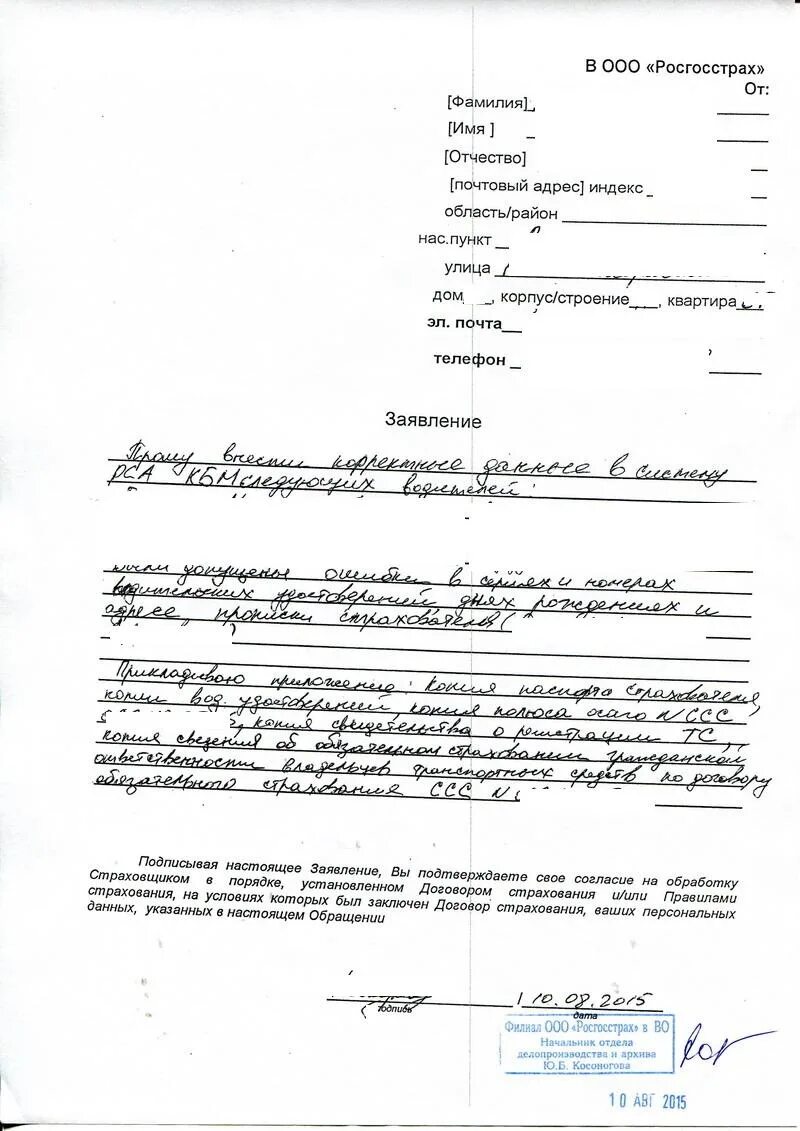 В ООО «Росгосстрах»
От:
[Фамилия]
[Имя ]
[Отчество]
[почтовый адрес] индекс
область/район
нас.пункт
улица
дом , корпус/строение , квартира
эл. почта
телефон
Заявление
Прошу внести корректные данные в систему
РСА КБМ следующих водителей:
были допущены ошибки в сериях и номерах
водительских удостоверений, днях рождениях и
адресе прописки страхователя (
)
Прикладываю приложение: копия паспорта страхователя,
копии вод. удостоверений, копия полюса осаго N ССС
, копия свидетельства о регистрации ТС,
копия сведения об обязательном страховании гражданской
ответственности владельцев транспортных средств по договору
обязательного страхования ССС N
Подписывая настоящее Заявление, Вы подтверждаете свое согласие на обработку
Страховщиком в порядке, установленном Договором страхования и/или Правилами
страхования, на условиях которых был заключен Договор страхования, ваших персональных
данных, указанных в настоящем Обращении
10.08.2015
подпись
дата
Филиал ООО «Росгосстрах» в ВО
Начальник отдела
делопроизводства и архива
Ю.Б. Косоногова
10 АВГ 2015